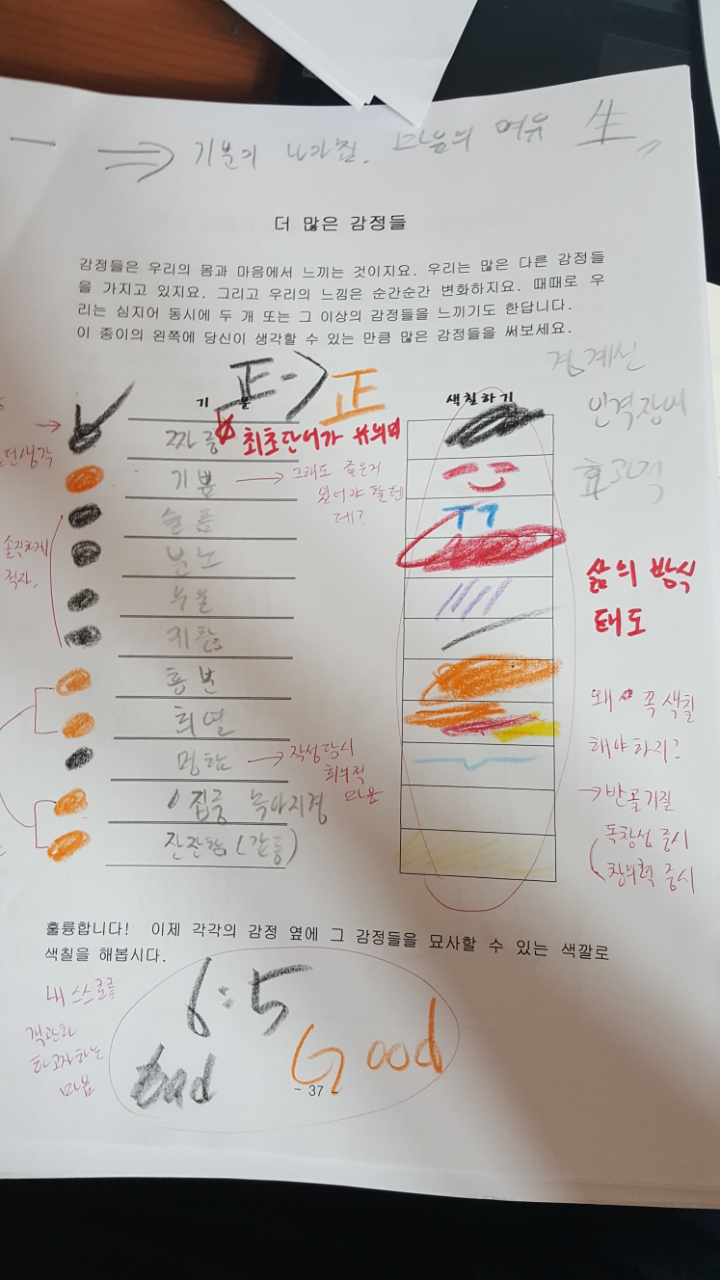 ⇒ 기분이 나아짐. 마음의 여유 生〃
더 많은 감정들
감정들은 우리의 몸과 마음에서 느끼는 것이지요. 우리는 많은 다른 감정들
을 가지고 있지요. 그리고 우리의 느낌은 순간순간 변화하지요. 때때로 우
리는 심지어 동시에 두 개 또는 그 이상의 감정들을 느끼기도 한답니다.
이 종이의 왼쪽에 당신이 생각할 수 있는 만큼 많은 감정들을 써보세요.
경계선
인격장애
효과적
기분
正->正
색칠하기
짜증
최초단어가 유의미
기쁨
그래도 좋은거
있어야 할텐
데?
슬픔
분노
우울
솔직하게
적자.
흥분
희열
멍함
작성당시
회의적
마음
집중
잔잔함 (감동)
TT
삶의 방식
태도
왜 꼭 색칠
해야하지?
→반골기질
독창성 중시
창의력 중시
훌륭합니다! 이제 각각의 감정 옆에 그 감정들을 묘사할 수 있는 색깔로
색칠을 해봅시다.
내 스스로를
객관화
하고자하는
마음
6:5
bad Good
- 37 -